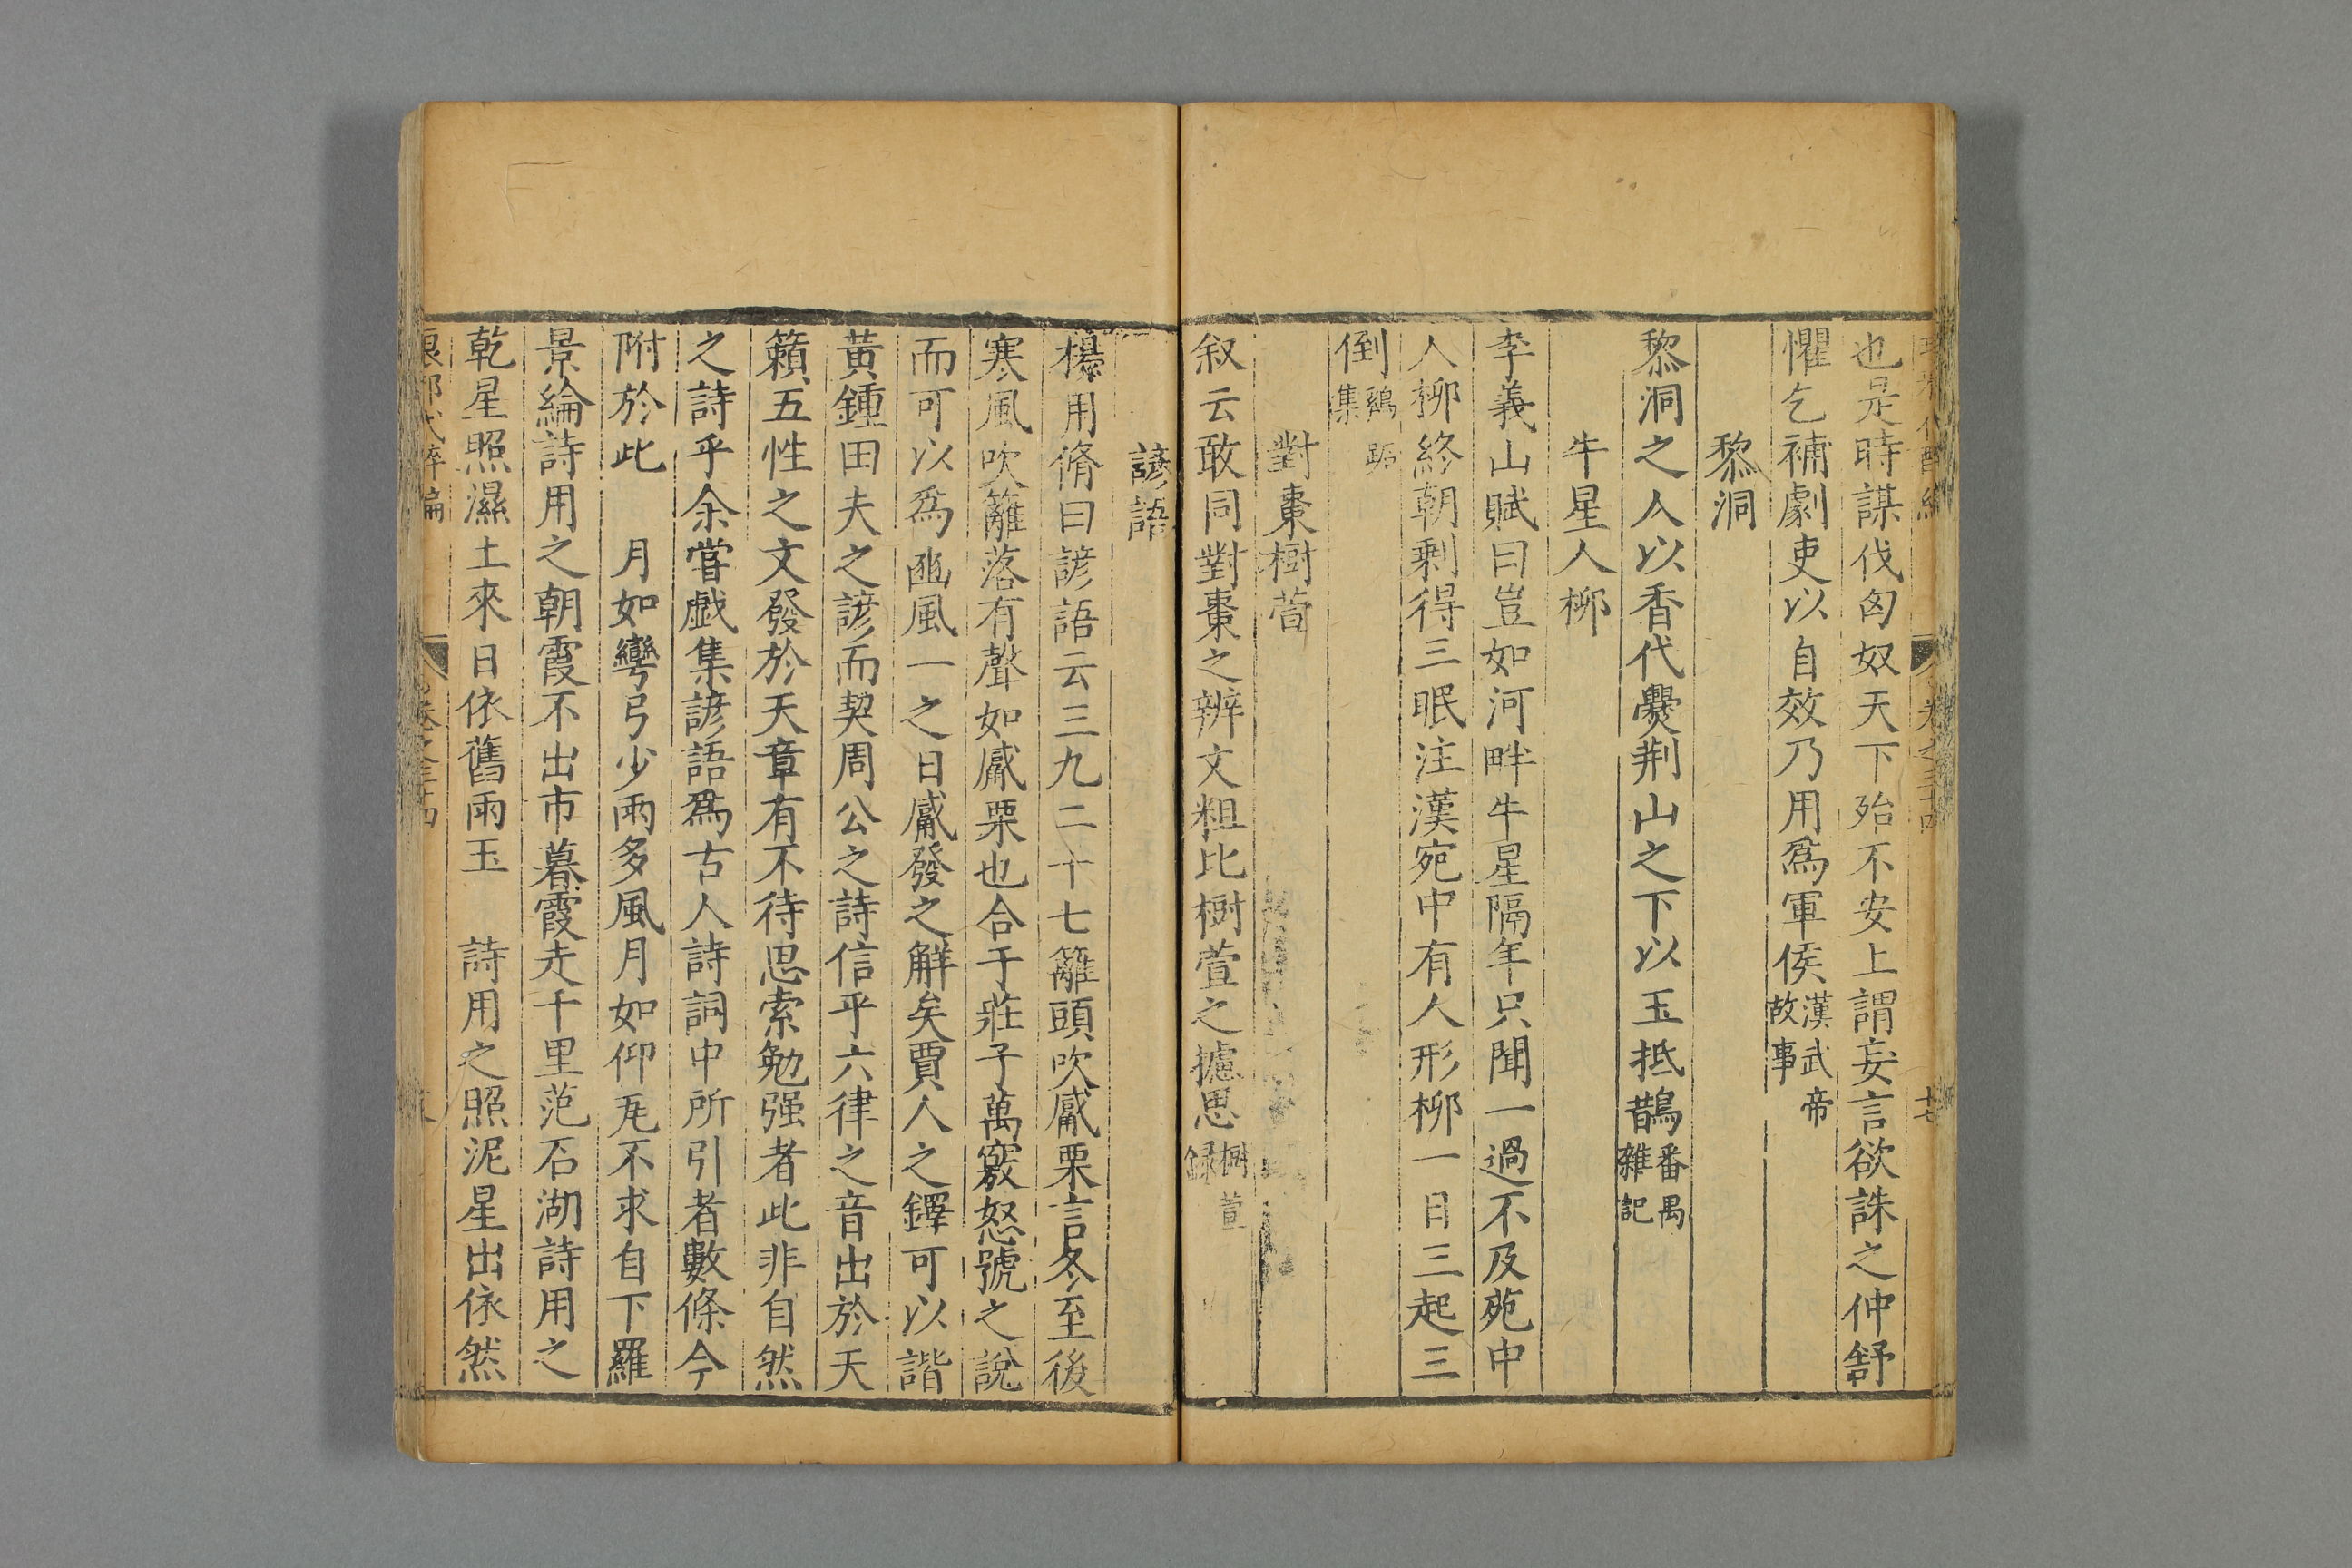 也是時謀伐匈奴天下殆不安上謂妄言欲誅之仲舒
懼乞補劇吏以自效乃用爲軍侯漢武帝故事
黎洞
黎洞之人以香代爨荆山之下以玉抵鵲番禺雜記
牛星人柳
李義山賦曰豈如河畔牛星隔年只聞一過不及苑中
人柳終朝剩得三眠注漢宛中有人形柳一日三起三
倒鷄跖集
對棗樹萱
叙云敢同對棗之辨文粗比樹萱之攄思樹萱録
諺語
楊用脩曰諺語云三九二十七籬頭吹觱栗言冬至後
寒風吹籬落有聲如觱栗也合于莊子萬竅怒號之說
而可以爲豳風一之日觱發之解矣賈人之鐸可以諧
黃鍾田夫之諺而契周公之詩信乎六律之音出於天
籟五性之文發於天章有不待思索勉强者此非自然
之詩乎余嘗戯集諺語爲古人詩詞中所引者數條今
附於此 月如彎弓少雨多風月如仰瓦不求自下羅
景綸詩用之朝霞不出市暮霞走千里范石湖詩用之
乾星照濕土來日依舊雨玉 詩用之照泥星出依然
卷之三十四